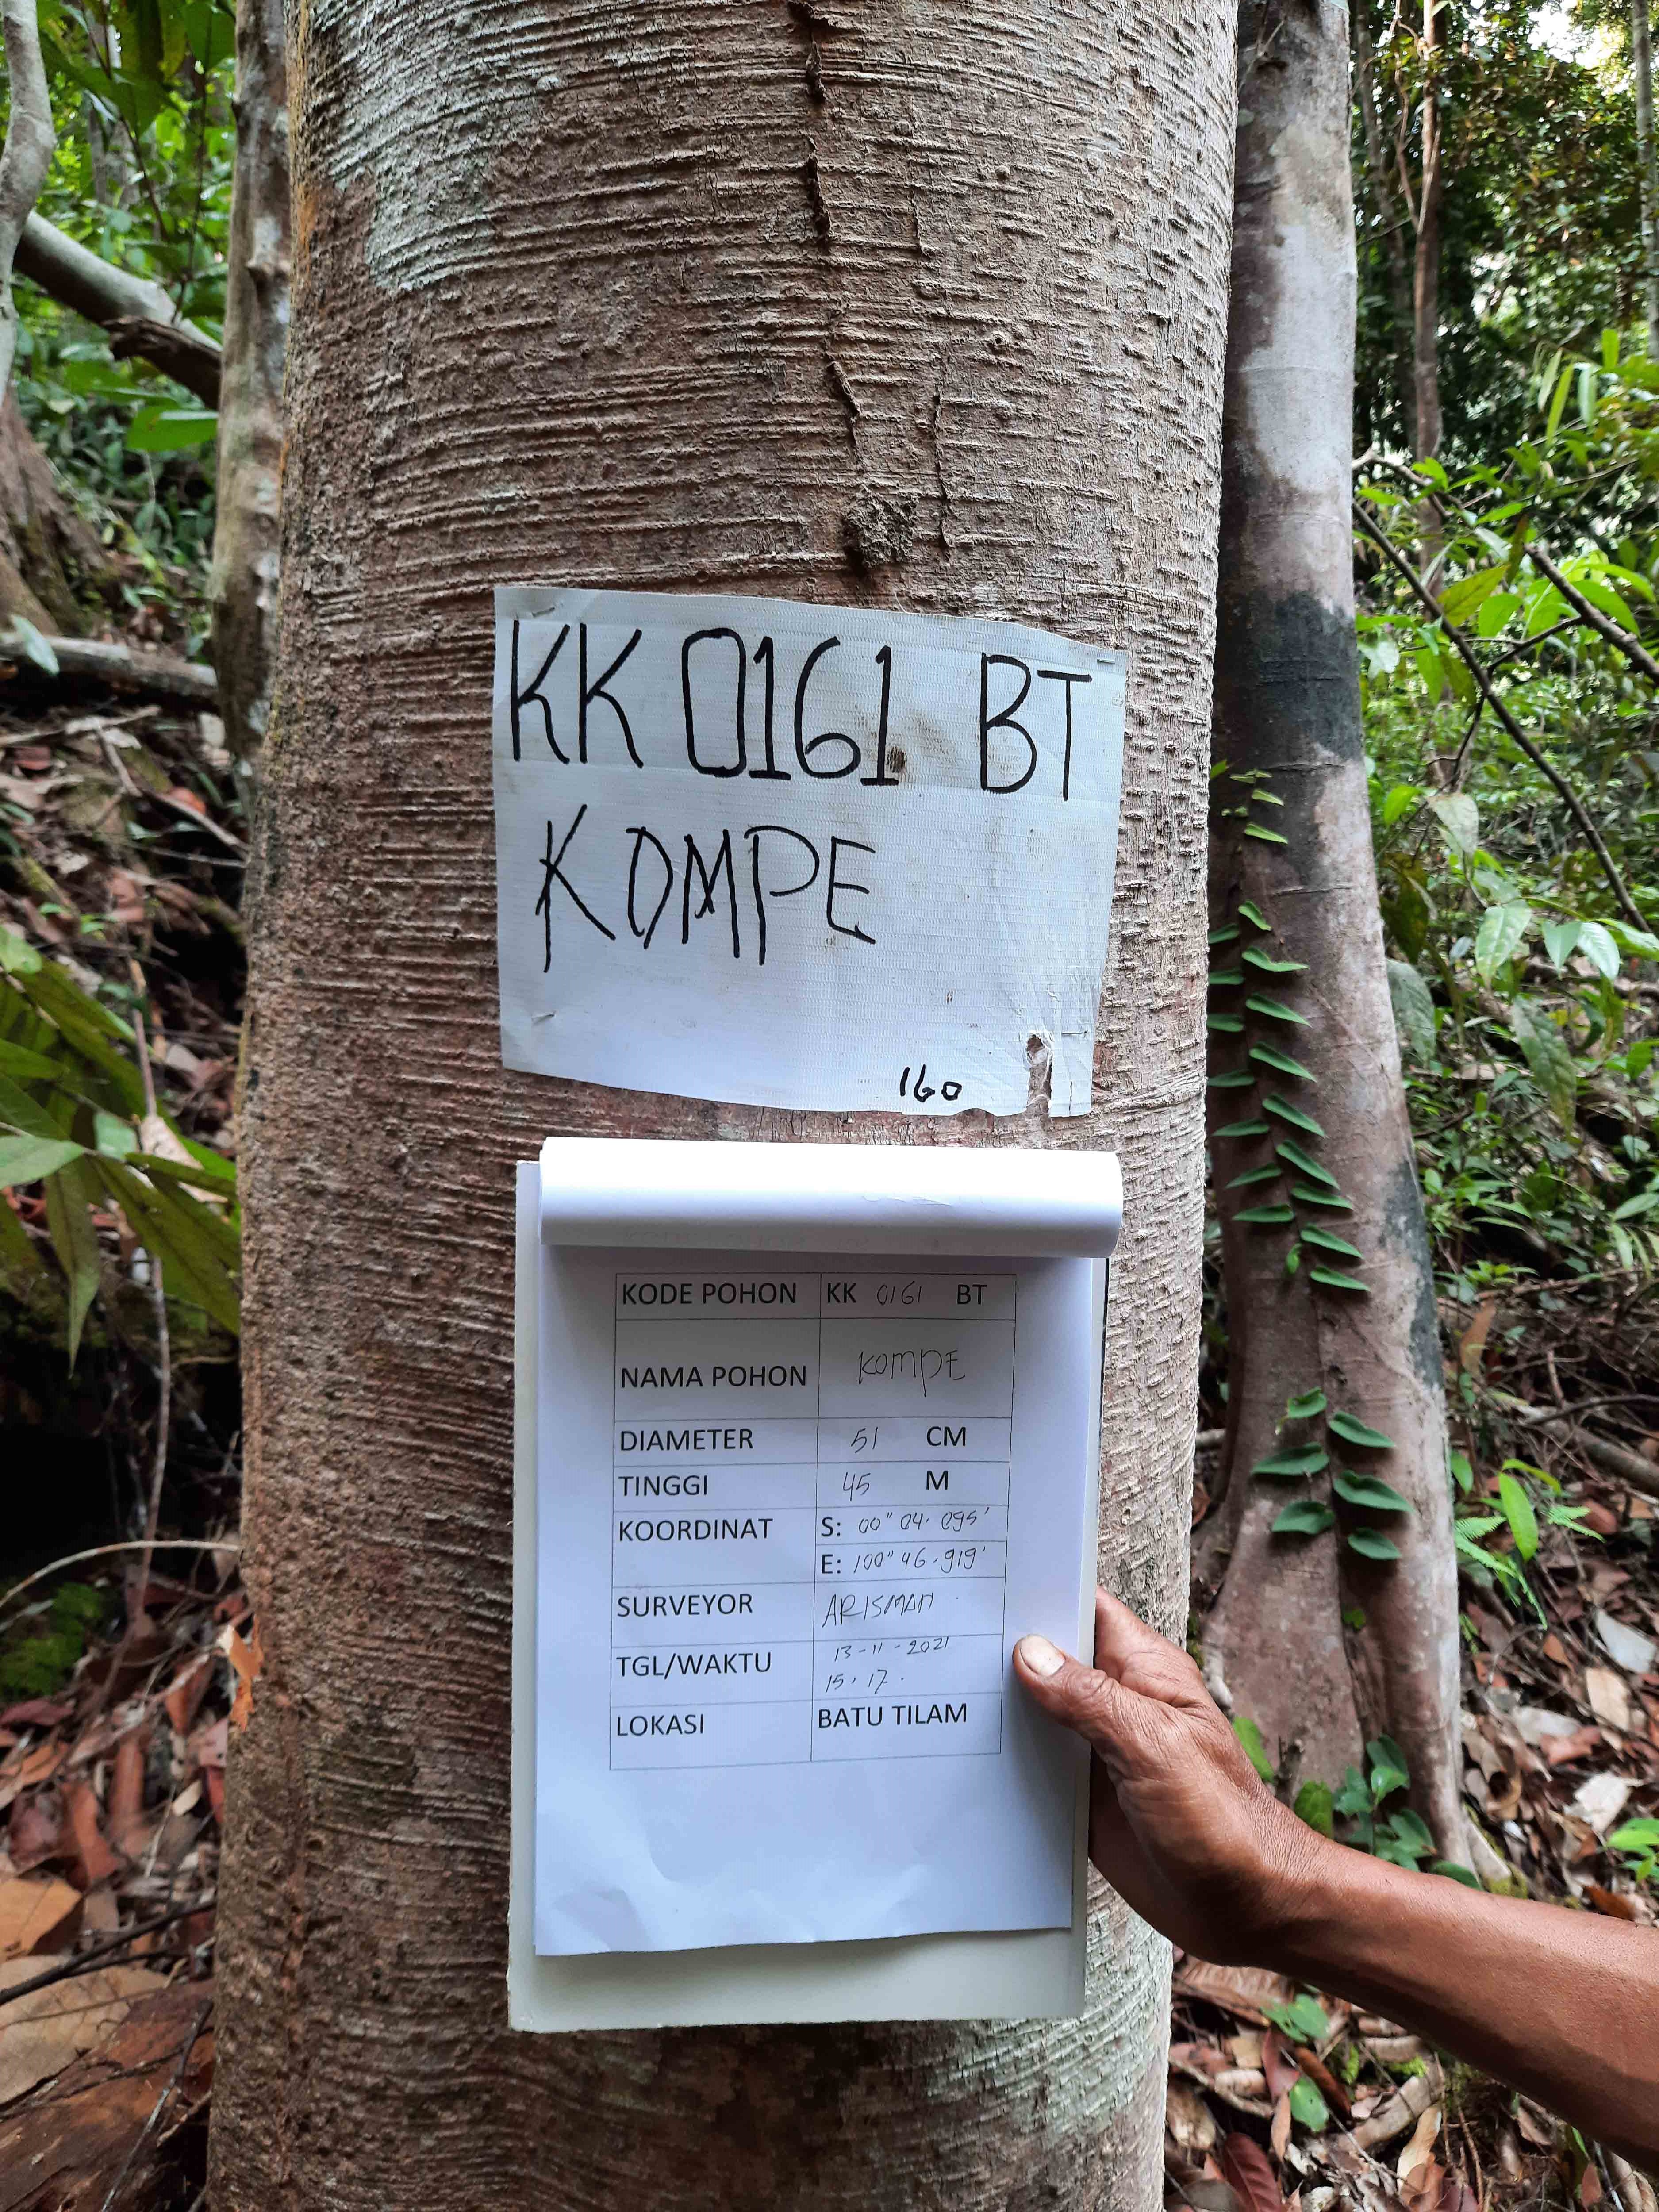 KK 0161 BT
KOMPE
160
KODE POHON KK 0161 BT
NAMA POHON KOMPE
DIAMETER 51 CM
TINGGI 45 M
KOORDINAT S: 00" 04. 095'
E: 100" 46.919'
SURVEYOR ARISMAN
TGL/WAKTU 13-11-2021
15.17.
LOKASI BATU TILAM